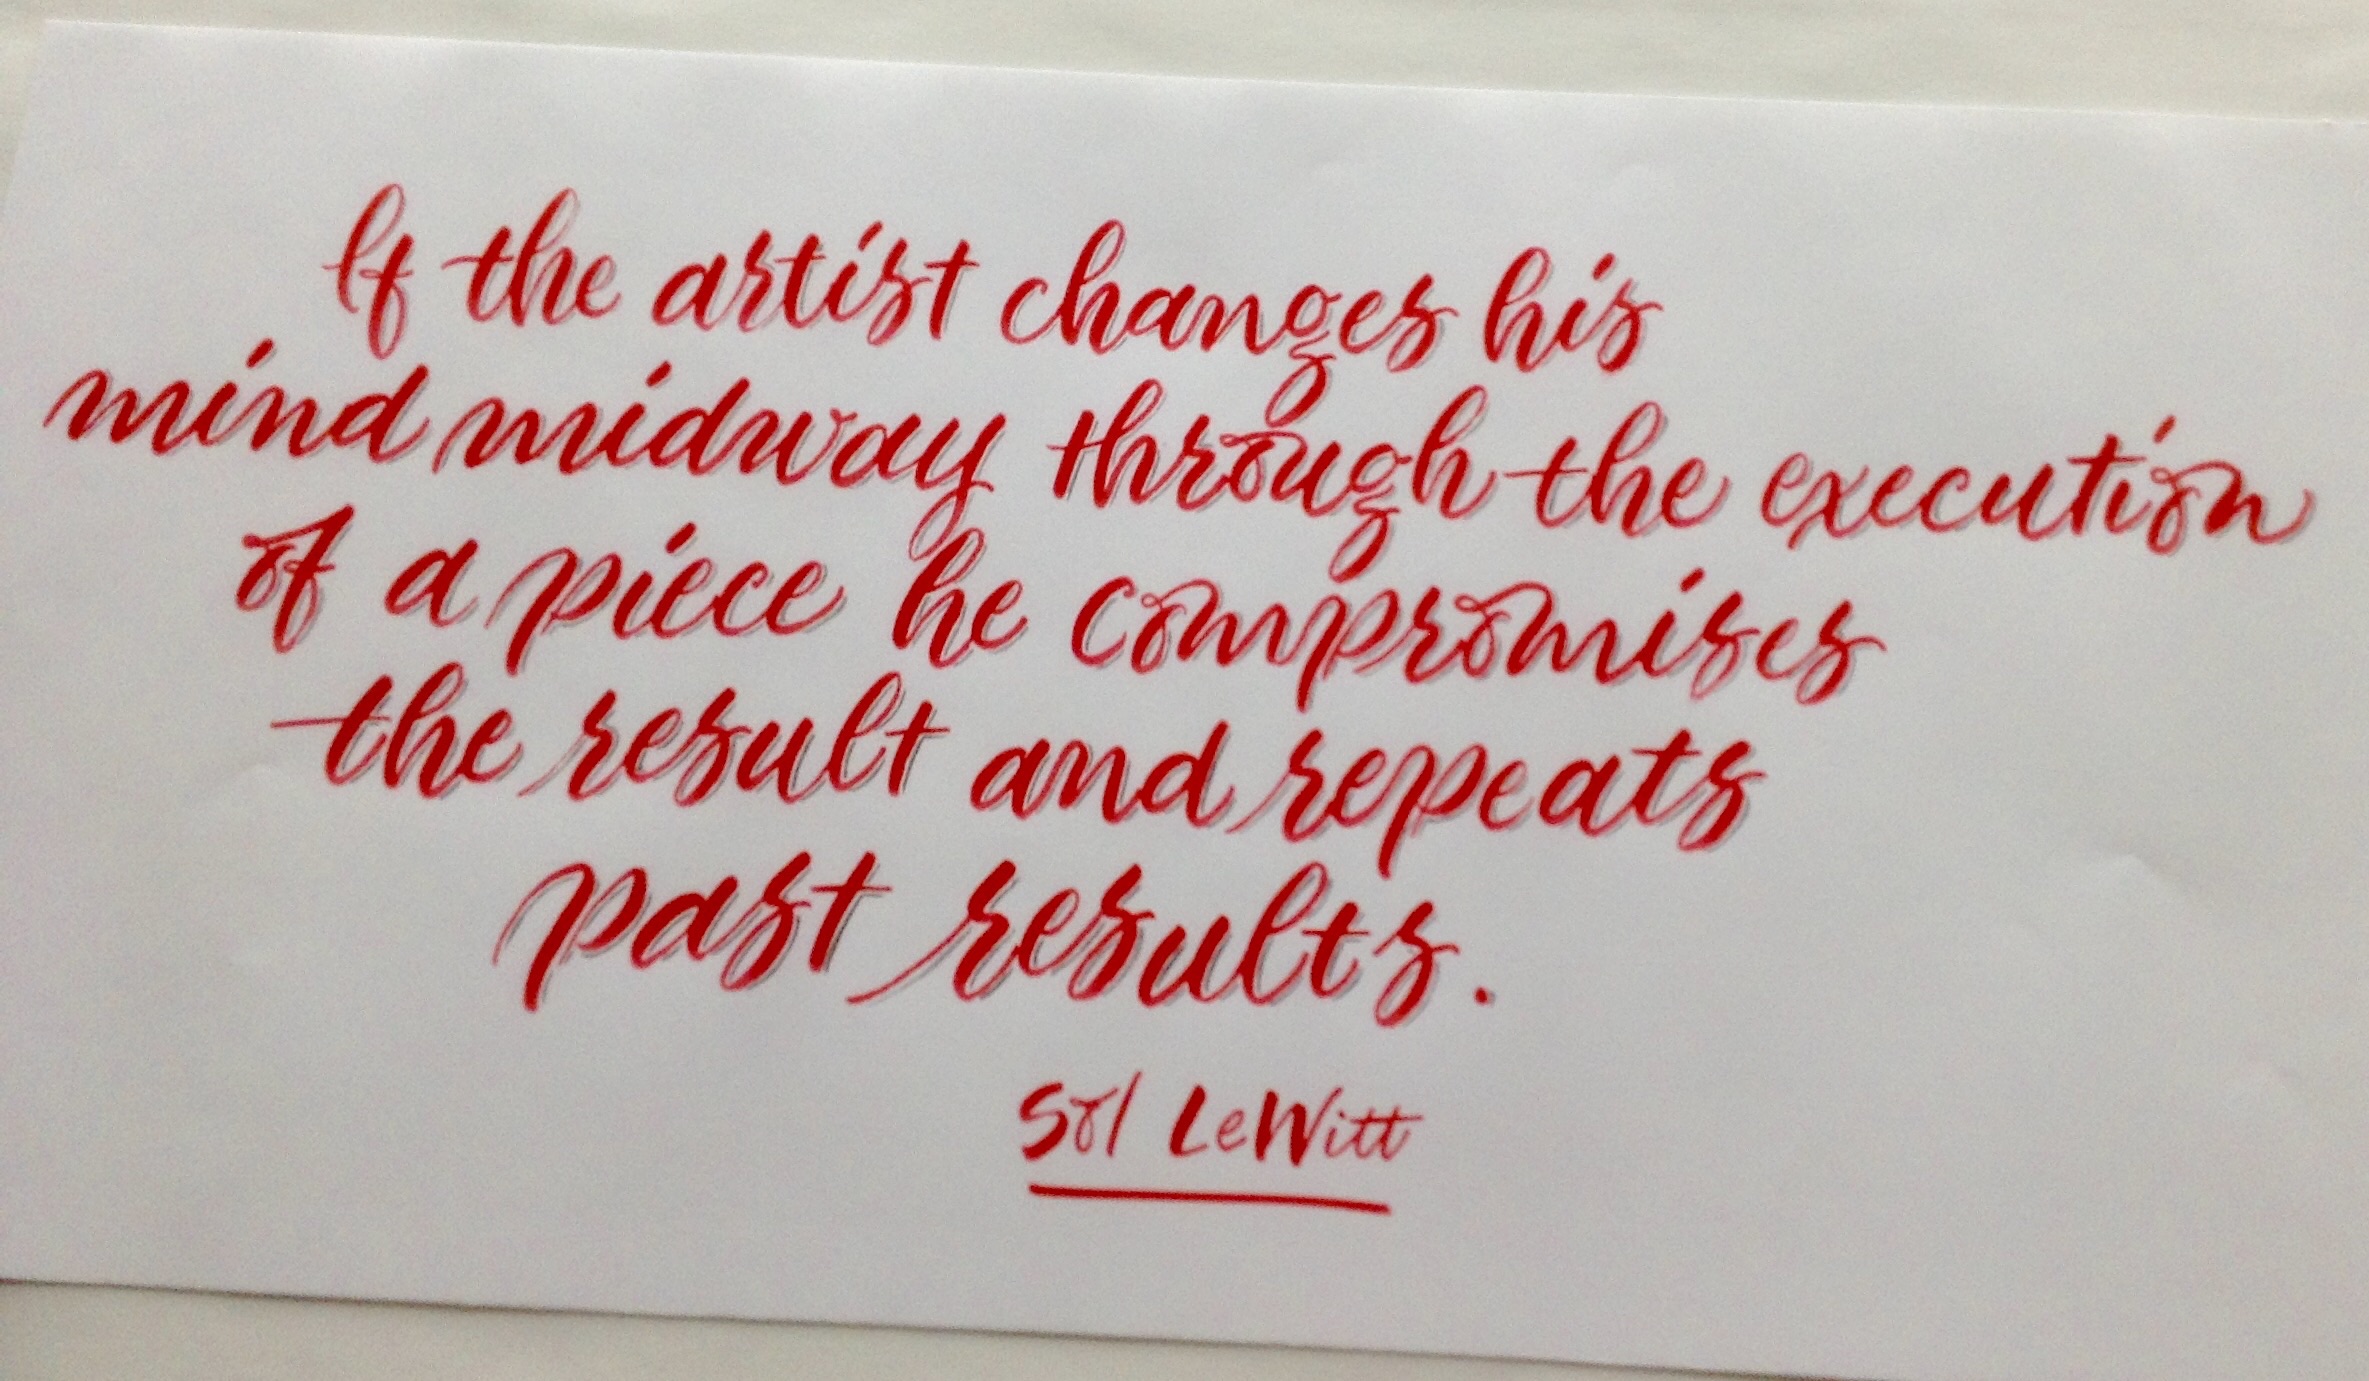 If the artist changes his
mind midway through the execution
of a piece he compromises
the result and repeats
past results.
Sol LeWitt